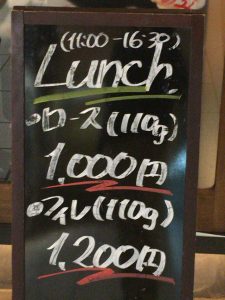 (11:00-16:30)
Lunch.
ロース(110g)
1,000円
フィレ(110g)
1,200円